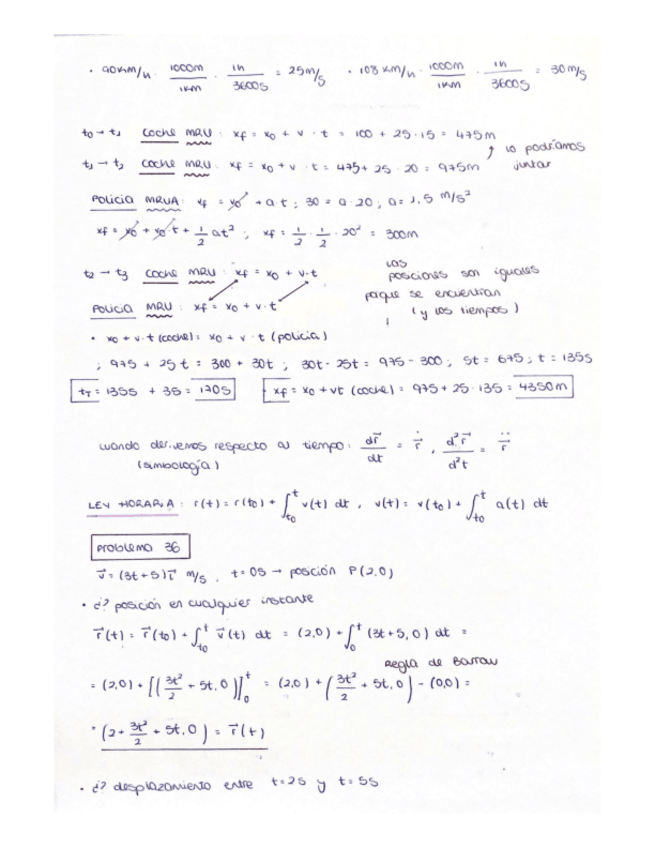 · 90 Km/h · 1000m/1Km · 1h/3600s = 25 m/s · 108 Km/h · 1000m/1Km · 1h/3600s = 30 m/s
t0 → t1 coche MRU: xf = x0 + v · t = 100 + 25 · 15 = 475m
lo podríamos juntar
t1 → t2 coche MRU: xf = x0 + v · t = 475 + 25 · 20 = 975m
Policia MRUA: vf = v0 + a·t ; 30 = a · 20 ; a = 1,5 m/s²
xf = x0 + v0 t + 1/2 at² ; xf = 1/2 · 1/2 · 20² = 300m
t2 → t3 coche MRU: xf = x0 + v·t
las posiciones son iguales
Policia MRU: xf = x0 + v·t
paque se encuentran
(y los tiempos)
• x0 + v·t (coche) = x0 + v · t (policia)
; 975 + 25 t = 300 + 30t ; 30t - 25t = 975 - 300 ; 5t = 675 ; t = 135s
tT = 135s + 35 = 170s xf = x0 + vt (coche) = 975 + 25 · 135 = 4350m
cuando derivemos respecto al tiempo: dr⃗/dt = ṙ⃗ , d²r⃗/d²t = r̈⃗
(simbología)
LEY HORARIA: r(t) = r(t0) + ∫t0^t v(t) dt , v(t) = v(t0) + ∫t0^t a(t) dt
Problema 36
v⃗ = (3t+5)i⃗ m/s , t = 0s → posición P(2,0)
• ¿? posición en cualquier instante
r⃗(t) = r⃗(t0) + ∫t0^t v⃗(t) dt = (2,0) + ∫0^t (3t+5, 0) dt =
Regla de Barrow
= (2,0) + [(3t²/2 + 5t, 0)]0^t = (2,0) + (3t²/2 + 5t, 0) - (0,0) =
= (2 + 3t²/2 + 5t, 0) = r⃗(t)
• ¿? desplazamiento entre t=2s y t=5s